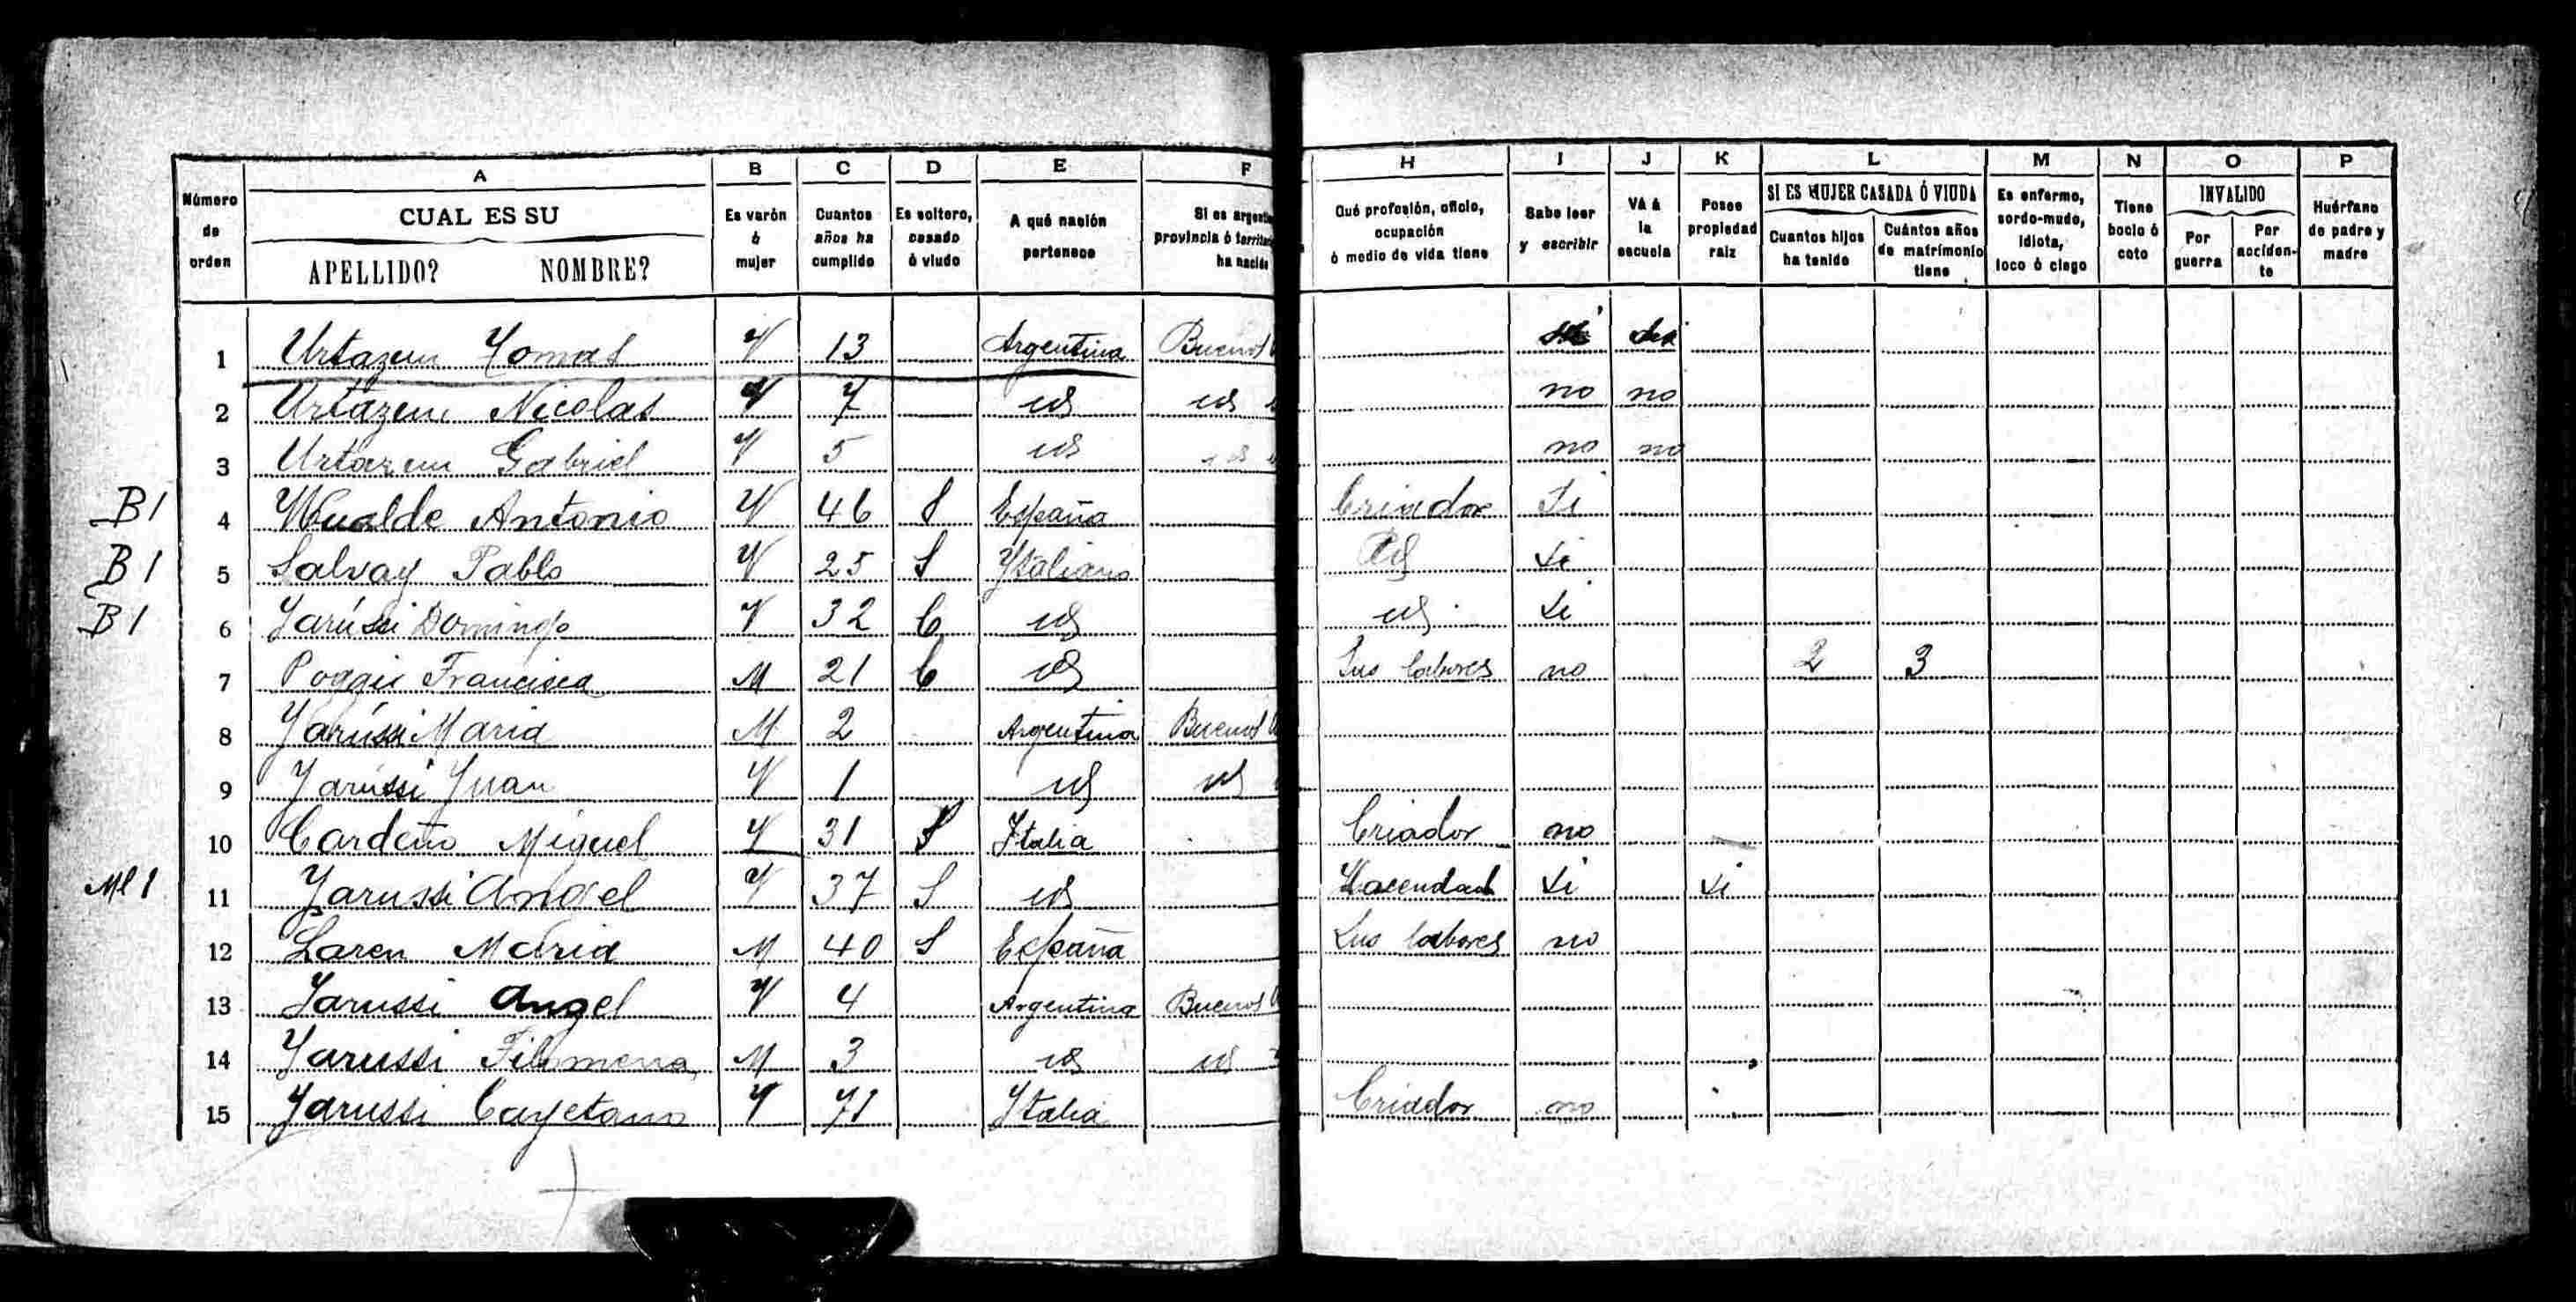 A B C D E F H I J K L M N O P
Número de orden
CUAL ES SU
APELLIDO? NOMBRE?
Es varón ó mujer
Cuantos años ha cumplido
Es soltero, casado ó viudo
A qué nación pertenece
Si es argentin
provincia ó territori
ha nacido
Qué profesión, oficio, ocupación ó medio de vida tiene
Sabe leer y escribir
VÁ á la escuela
Posee propiedad raiz
SI ES MUJER CASADA Ó VIUDA
Cuantos hijos ha tenido
Cuántos años de matrimonio tiene
Es enfermo, sordo-mudo, idiota, loco ó ciego
Tiene bocio ó coto
INVALIDO
Por guerra
Por acciden-te
Huérfano de padre y madre
1 Urtazun Tomas V 13 Argentina Buenos
2 Urtazun Nicolas V 7 id id no no
3 Urtazun Gabriel V 5 id id no no
B1 4 Antonio V 46 S España Criador Si
B1 5 Salvay Pablo V 25 S Ytaliano id Si
B1 6 Yarússi Domingo V 32 C id id Si
7 Poggio Francisca M 21 C id Sus labores no 2 3
8 Yarússi Maria M 2 Argentina Buenos
9 Yarússi Juan V 1 id id
10 Cardeño Miguel V 31 S Italia Criador no
11 Yarussi Angel V 37 S id Hacendad Si Si
12 Laren Maria M 40 S España Sus labores no
13 Yarussi Angel V 4 Argentina Buenos
14 Yarussi Filomena M 3 id id
15 Yarussi Cayetano V 71 Italia Criador no